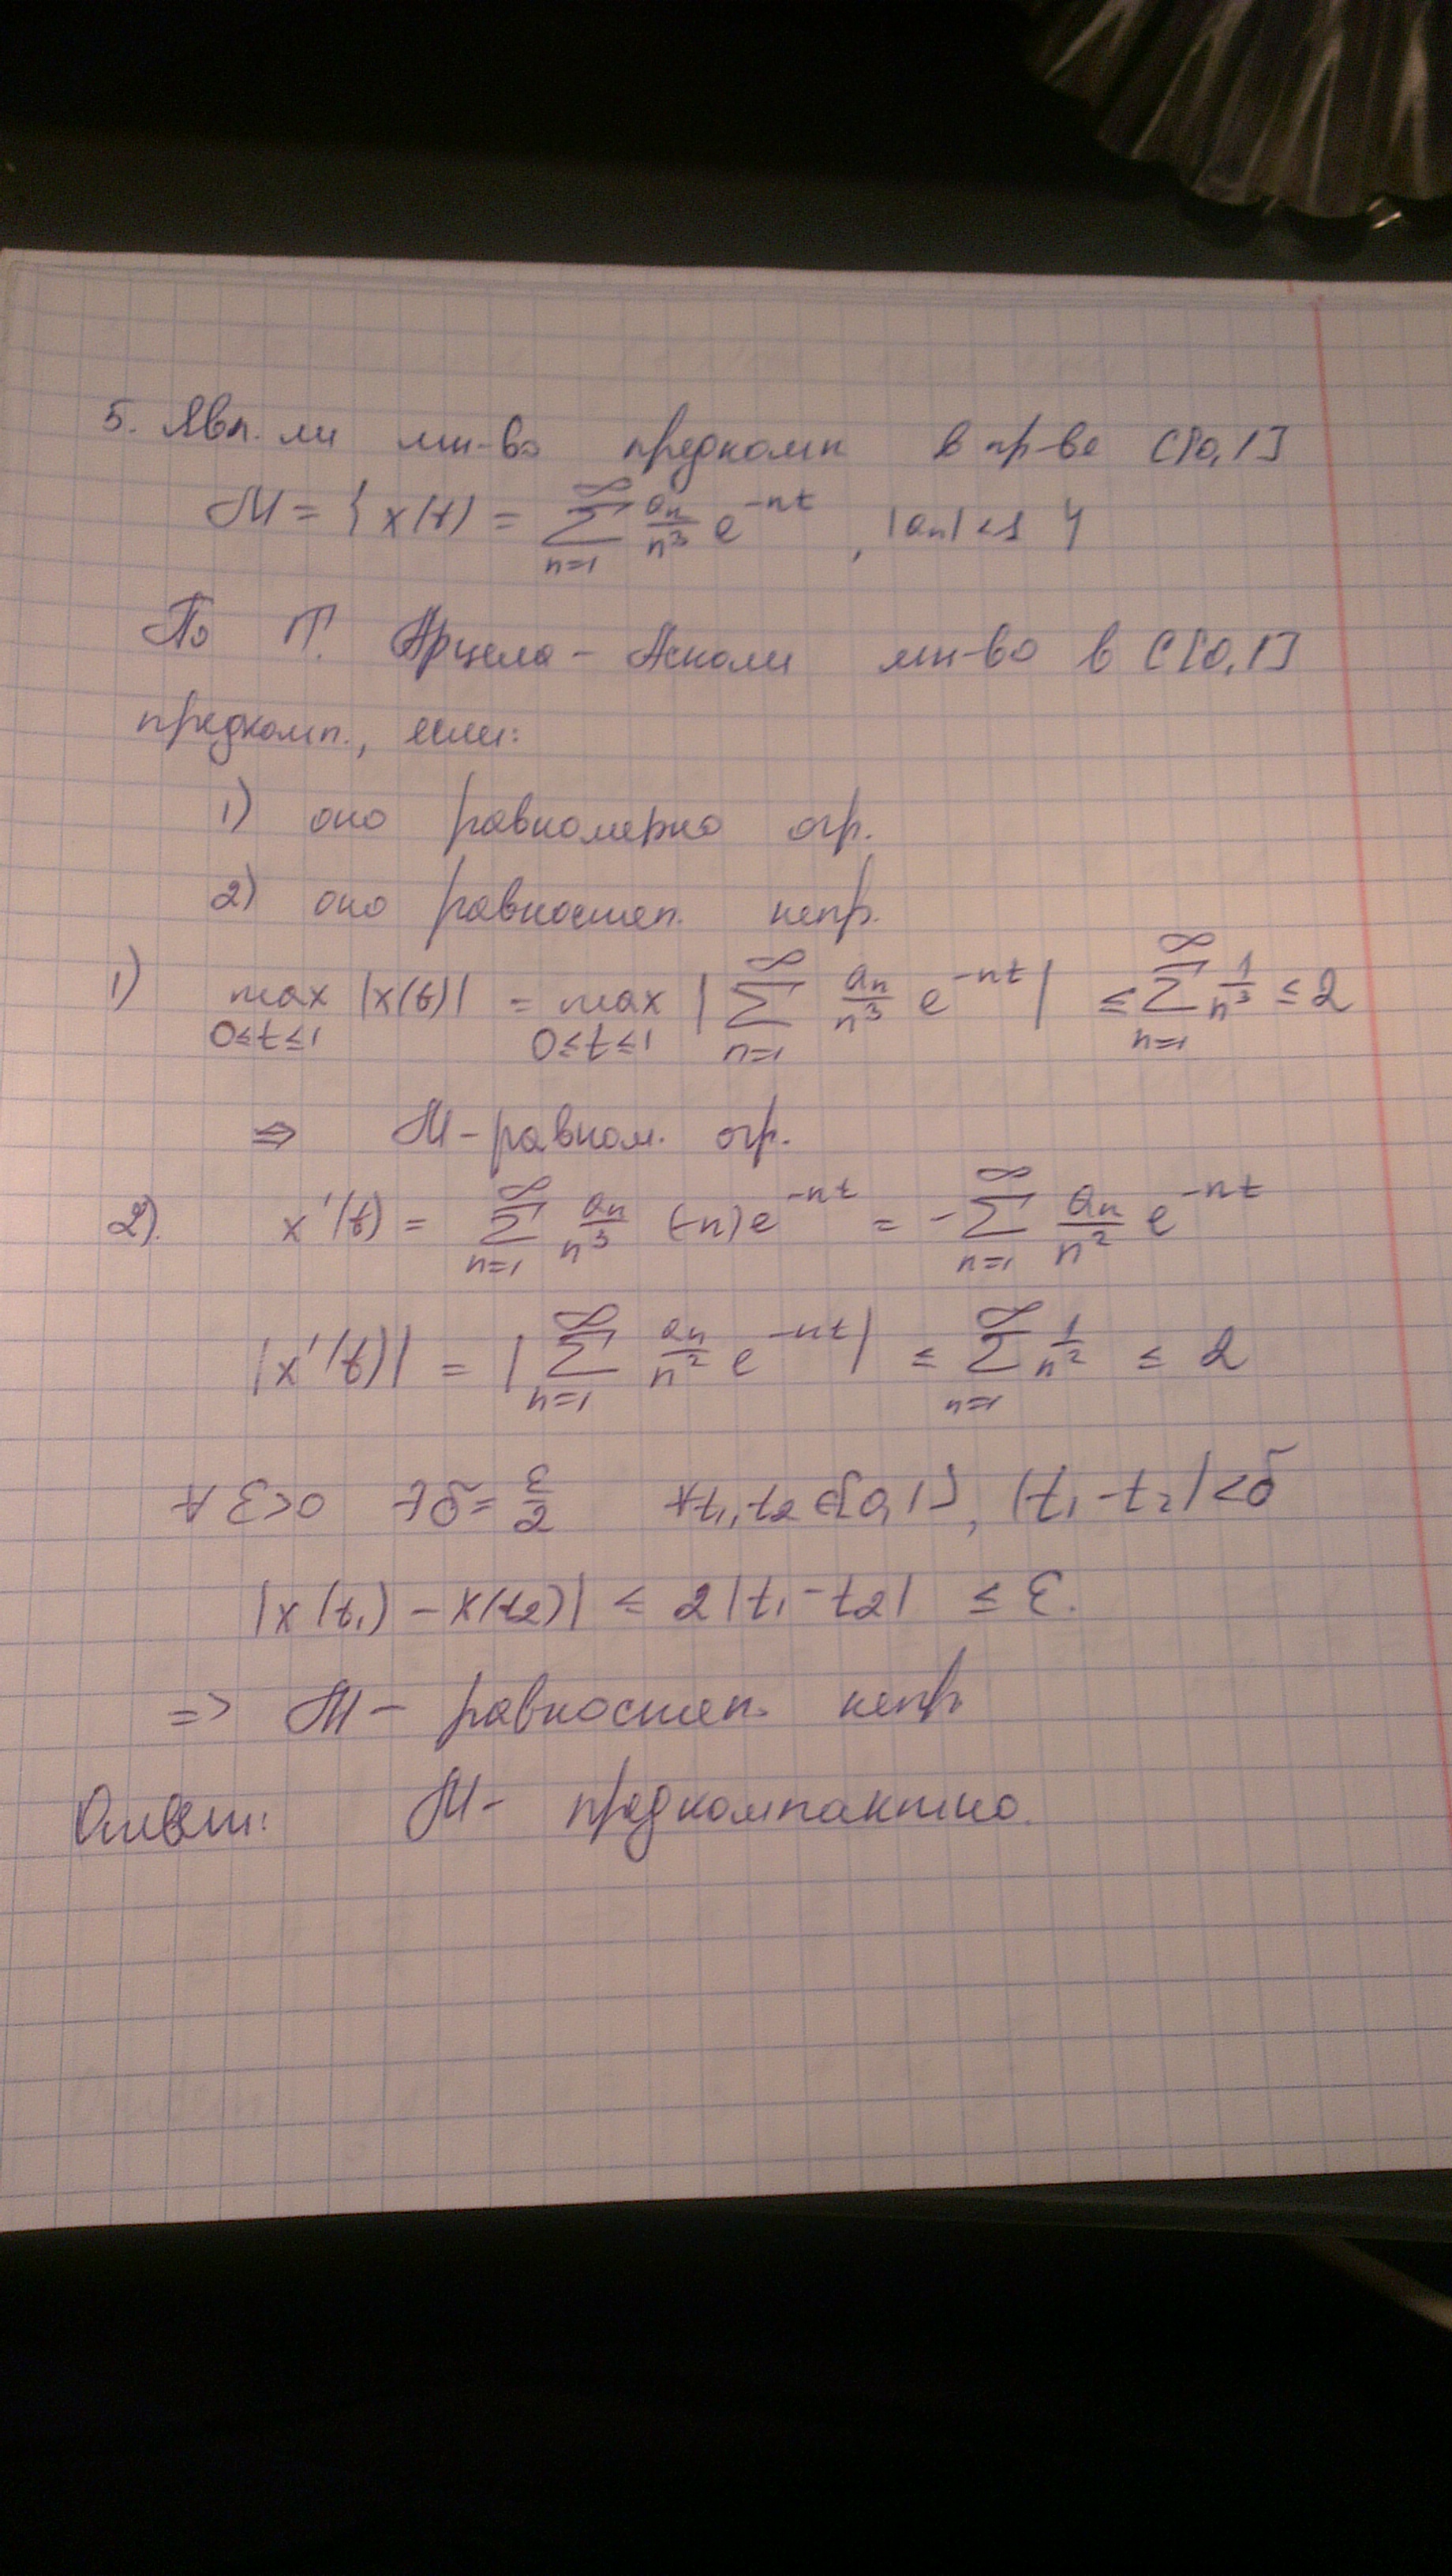 5. Явл. ли мн-во предкомп в пр-ве C[0,1]
M = { x(t) = ∑_{n=1}^{∞} a_n/n³ e^{-nt}, |a_n| < 1 }
По Т. Арцела - Асколи мн-во в C[0,1]
предкомп., если:
1) оно равномерно огр.
2) оно равностеп. непр.
1) max_{0≤t≤1} |x(t)| = max_{0≤t≤1} | ∑_{n=1}^{∞} a_n/n³ e^{-nt} | ≤ ∑_{n=1}^{∞} 1/n³ ≤ 2
⇒ M - равном. огр.
2). x'(t) = ∑_{n=1}^{∞} a_n/n³ (-n)e^{-nt} = - ∑_{n=1}^{∞} a_n/n² e^{-nt}
|x'(t)| = | ∑_{n=1}^{∞} a_n/n² e^{-nt} | ≤ ∑_{n=1}^{∞} 1/n² ≤ 2
∀ ε>0 ∃ δ = ε/2 ∀ t₁, t₂ ∈ [0,1], |t₁ - t₂| < δ
|x(t₁) - x(t₂)| ≤ 2|t₁ - t₂| ≤ ε.
=> M - равностеп. непр
Ответ: M - предкомпактно.